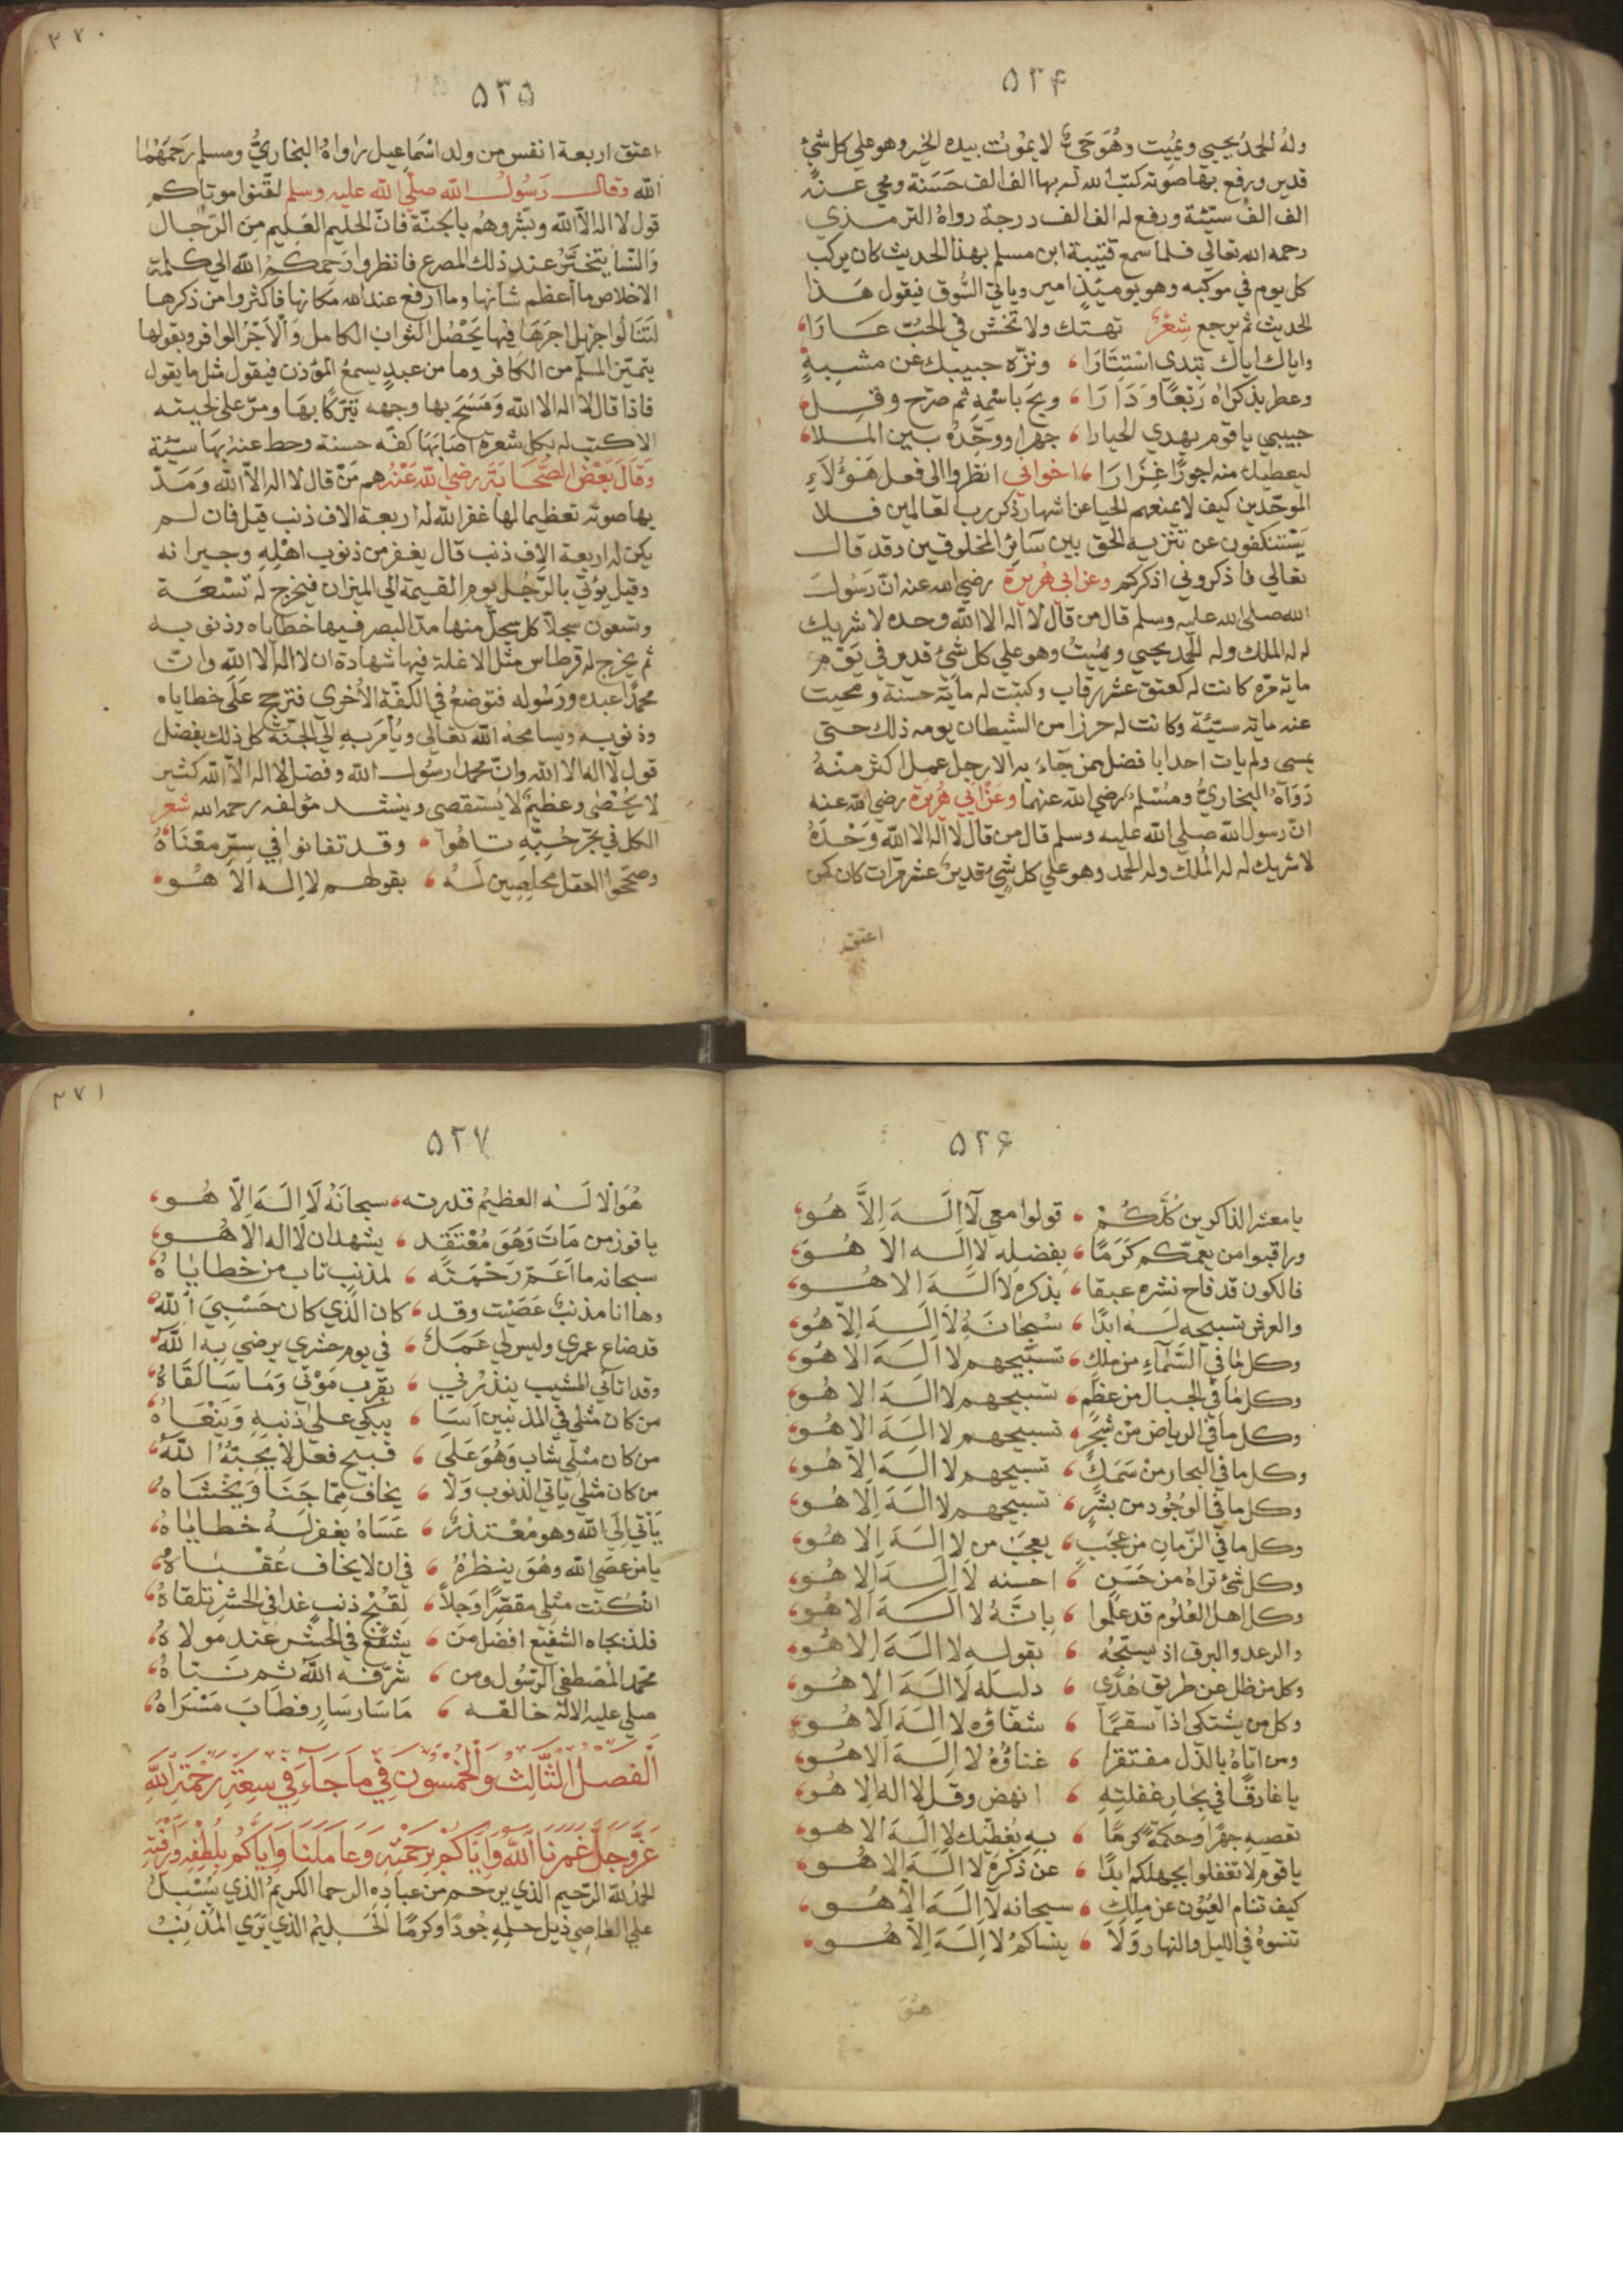 ٥٢٤
وله الحمد يحيي ويميت وهو حي لا يموت بيده الخير وهو علي كل شئ
قدير ورفع بها صوته كتب الله له بها الف الف حسنة ومحي عنه
الف الف سيئة ورفع له الف الف درجة رواه الترمذي
رحمه الله تعالي فلما سمع قتيبة ابن مسلم بهذا الحديث كان يركب
كل يوم في موكبه وهو يوميذ امير وياتي السوق فيقول هذا
الحديث ثم يرجع شعر تهتك ولا تخش في الحب عارا
واياك اياك تبدي استتارا ونزه حبيبك عن مشبه
وعطر بذكراه ربعا ودارا وبح باسمه ثم صرح وقل
حبيبي يا قوم يهدي الحيارا جهرا ووحده بين الملا
ليعطيك منه اجورا غزارا اخواني انظروا الي فعل هؤلاء
الموحدين كيف لا يمنعهم الحيا عن اشهار ذكر رب العالمين فلا
يستنكفون عن تنزيه الحق بين سائر المخلوقين وقد قال
تعالي فاذكروني اذكركم وعن ابي هريرة رضي الله عنه ان رسول
الله صلي الله عليه وسلم قال من قال لا اله الا الله وحده لا شريك
له له الملك وله الحمد يحيي ويميت وهو علي كل شئ قدير في يوم
ماية مره كانت له كعتق عشر رقاب وكتبت له ماية حسنة ومحيت
عنه ماية سيئة وكانت له حرزا من الشيطان يومه ذلك حتي
يمسي ولم يات احد بافضل ممن جاء به الا رجل عمل اكثر منه
رواه البخاري ومسلم رضي الله عنهما وعن ابي هريرة رضي الله عنه
ان رسول الله صلي الله عليه وسلم قال من قال لا اله الا الله وحده
لا شريك له له الملك وله الحمد وهو علي كل شئ قدير عشر مرات كان كمن
اعتق
٢٧٠
٥٢٥
اعتق اربعة انفس من ولد اسماعيل رواه البخاري ومسلم رحمهما
الله وقال رسول الله صلي الله عليه وسلم لقنوا موتاكم
قول لا اله الا الله وبشروهم بالجنة فان الحليم العليم من الرجال
والنسا يتحير عند ذلك المصرع فانظروا رحمكم الله الي كلمة
الاخلاص ما اعظم شانها وما ارفع عند الله مكانها فاكثروا من ذكرها
لتنالوا جزيل اجرها فبها يحصل الثواب الكامل والاجر الوافر وبقولها
يتميز المسلم من الكافر وما من عبد يسمع المؤذن فيقول مثل ما يقول
فاذا قال لا اله الا الله ومسح بها وجهه تبركا بها ومر علي لحيته
الا كتب له بكل شعرة اصابها كفه حسنة وحط عنه بها سيئة
وقال بعض الصحابة رضي الله عنهم من قال لا اله الا الله ومد
بها صوته تعظيما لها غفر الله له اربعة الاف ذنب قيل فان لم
يكن له اربعة الاف ذنب قال يغفر من ذنوب اهله وجيرانه
وقيل يؤتي بالرجل يوم القيمة الي الميزان فيخرج له تسعة
وتسعون سجلا كل سجل منها مد البصر فيها خطاياه وذنوبه
ثم يخرج له قرطاس مثل الانملة فيها شهادة ان لا اله الا الله وان
محمدا عبده ورسوله فتوضع في الكفة الاخري فترجح علي خطاياه
وذنوبه ويسامحه الله تعالي ويأمر به الي الجنة كل ذلك بفضل
قول لا اله الا الله وان محمدا رسول الله وفضل لا اله الا الله كثير
لا يحصي وعظيم لا يستقصي وينشد مؤلفه رحمه الله شعر
الكل في بحر حبه تاهوا وقد تفانوا في سر معناه
وصححوا العقل مخلصين له بقولهم لا اله الا هو
٥٢٦
يا معشر الذاكرين كلكم قولوا معي لا اله الا هو
وراقبوا من يعمكم كرما بفضله لا اله الا هو
فالكون قد فاح نشره عبقا بذكره لا اله الا هو
والعرش تسبيحه له ابدا سبحانه لا اله الا هو
وكل ما في السماء من ملك تسبيحهم لا اله الا هو
وكل ما في الجبال من عظم تسبيحهم لا اله الا هو
وكل ما في الرياض من شجر تسبيحهم لا اله الا هو
وكل ما في البحار من سمك تسبيحهم لا اله الا هو
وكل ما في الوجود من بشر تسبيحهم لا اله الا هو
وكل ما في الزمان من عجب يعجب من لا اله الا هو
وكل شئ تراه من حسن احسنه لا اله الا هو
وكل اهل العلوم قد علموا بانه لا اله الا هو
والرعد والبرق اذ يسبحه بقوله لا اله الا هو
وكل من ظل عن طريق هدي دليله لا اله الا هو
وكل من يشتكي اذا سقما شفاؤه لا اله الا هو
ومن اتاه بالذل مفتقرا غناؤه لا اله الا هو
يا غارقا في بحار غفلته انهض وقل لا اله الا هو
تعصيه جهرا وحكمة كرما به يغطيك لا اله الا هو
يا قوم لا تغفلوا بجهلكم ابدا عن ذكره لا اله الا هو
كيف تنام العيون عن ملك سبحانه لا اله الا هو
تنسوه في الليل والنهار ولا ينساكم لا اله الا هو
هو
٢٧١
٥٢٧
هو الاله العظيم قدرته سبحانه لا اله الا هو
يا فوز من مات وهو معتقد يشهد ان لا اله الا هو
سبحانه ما اعم رحمته لمذنب تاب من خطاياه
وها انا مذنب عصيت وقد كان الذي كان حسبي الله
قد ضاع عمري وليس لي عمل في يوم حشري يرضي به الله
وقد اتاني المشيب ينذرني بقرب موتي وما سالقاه
من كان مثلي في المذنبين اسا يبكي علي ذنبه وينعاه
من كان مثلي شاب وهو علي قبيح فعل لا يحبه الله
من كان مثلي ياتي الذنوب ولا يخاف مما جنا ويخشاه
يأتي الي الله وهو معتذر عساه يغفر له خطاياه
يا من عصي الله وهو ينظره في ان لا يخاف عقباه
ان كنت مثلي مقصرا وجلا لقبح ذنب غدا في الحشر تلقاه
فلذ بجاه الشفيع افضل من يشفع في الحشر عند مولاه
محمد المصطفي الرسول ومن شرفه الله ثم نباه
صلي عليه الاله خالقه ما سار سار فطاب مسراه
الفصل الثالث والخمسون في ما جاء في سعة رحمة الله
عز وجل غمرنا الله واياكم برحمته وعاملنا واياكم بلطفه ورافته
الحمد لله الرحيم الذي يرحم من عباده الرحما الكريم الذي يسبل
علي العاصي ذيل حلمه جودا وكرما الحليم الذي يري المذنب